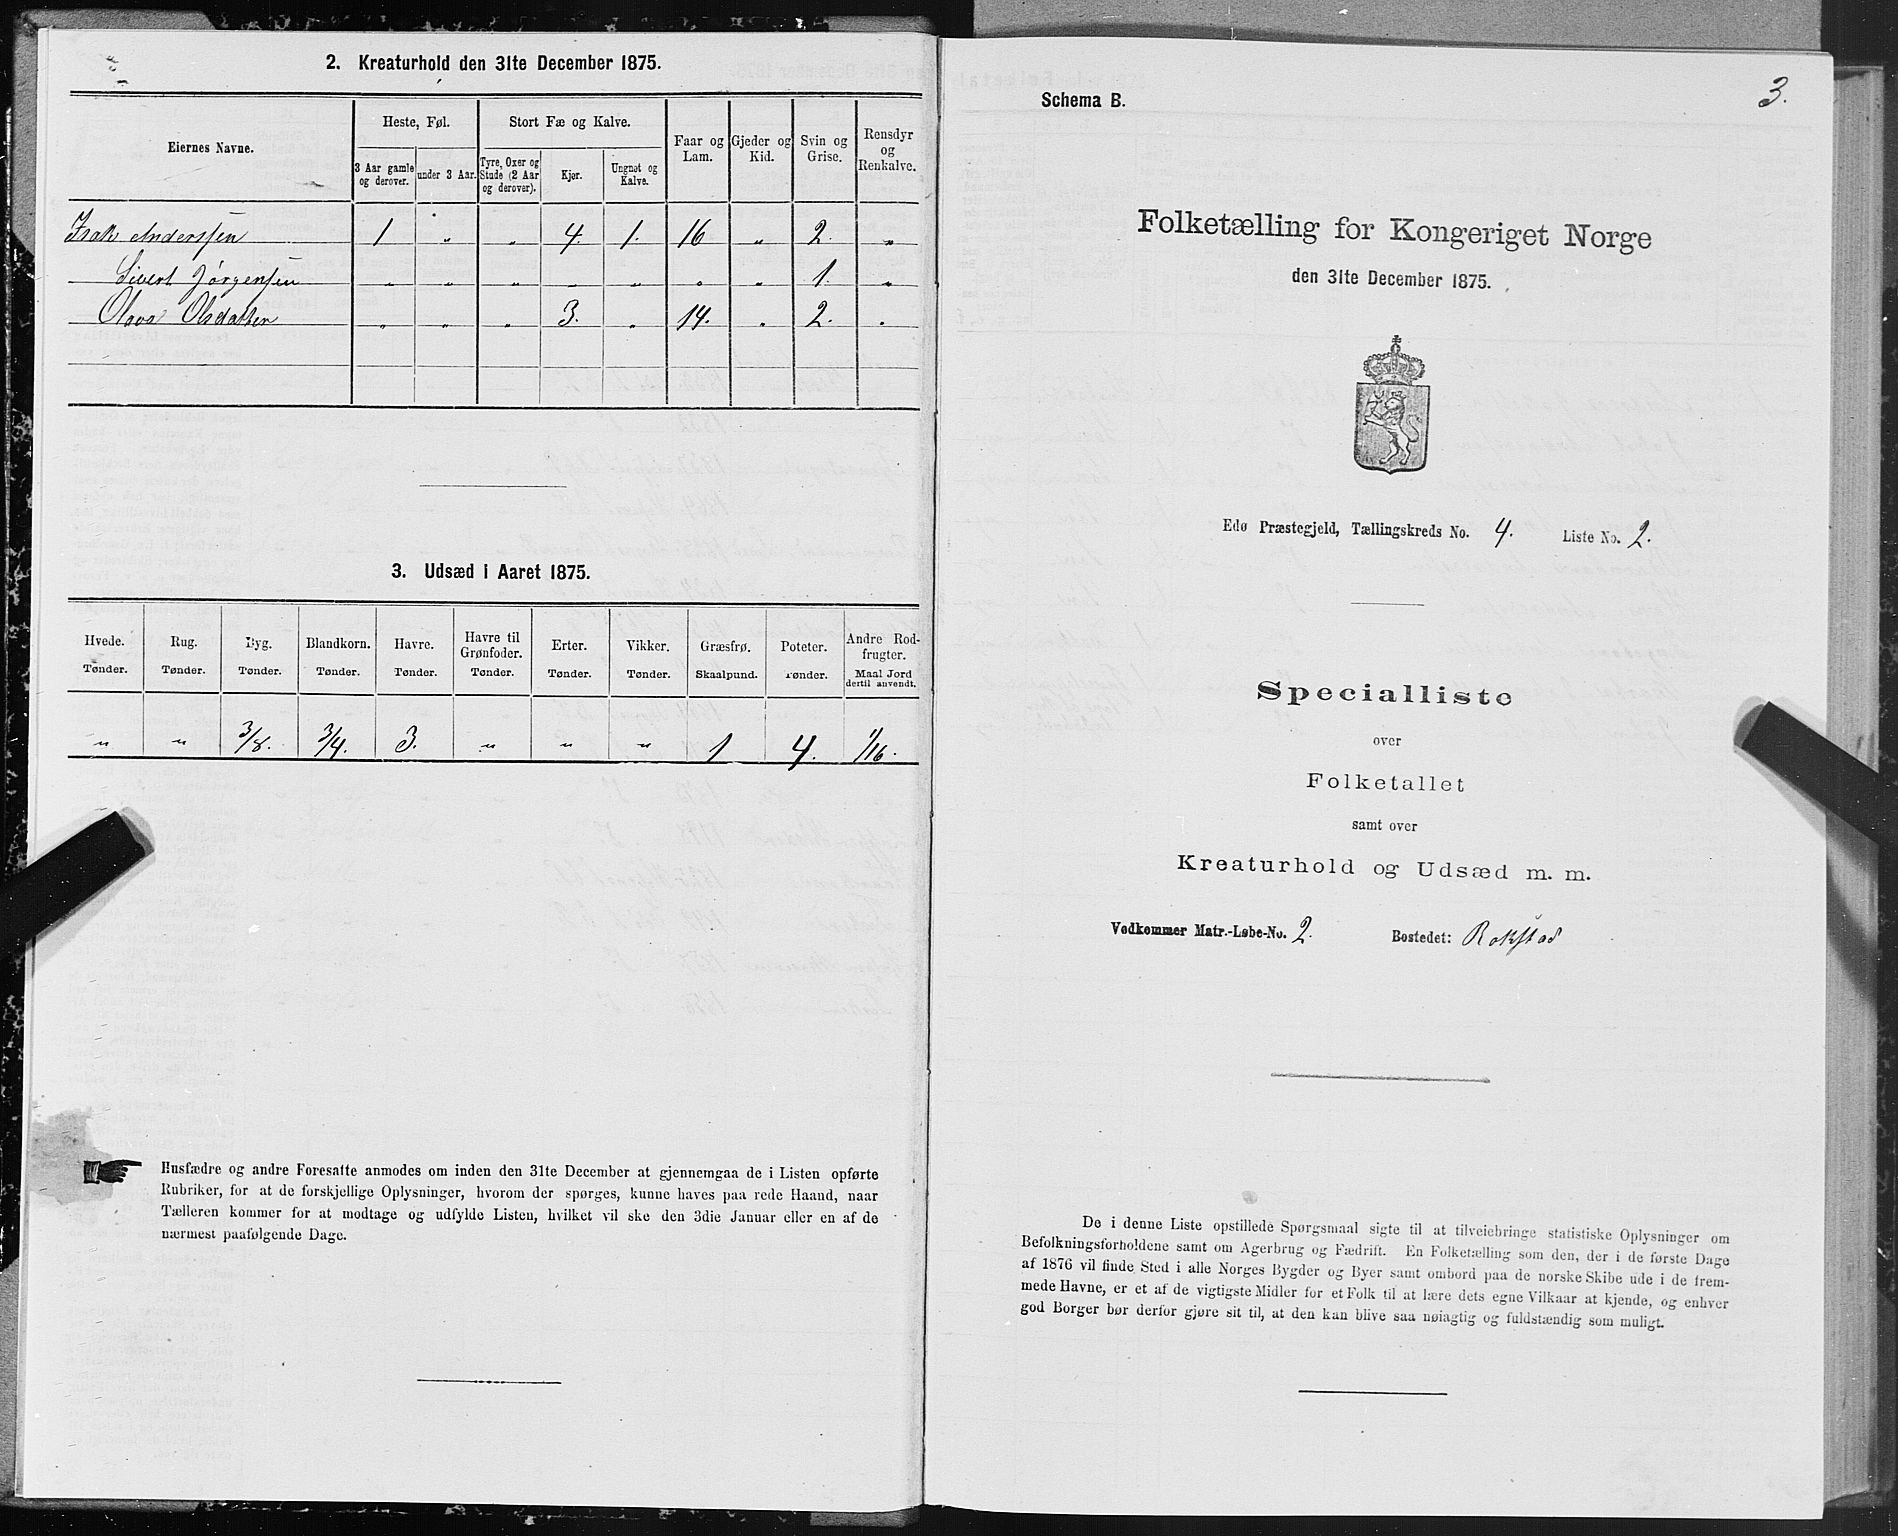 2. Kreaturhold den 31te December 1875.
Eiernes Navne.
Heste, Føl.
Stort Fæ og Kalve.
Faar og Lam.
Gjeder og Kid.
Svin og Grise.
Rensdyr og Renkalve.
3 Aar gamle og derover.
under 3 Aar.
Tyre, Oxer og Stude (2 Aar og derover).
Kjør.
Ungnøt og Kalve.
Isak Anderssen 1 " " 4. 1. 16 " 2. "
Sivert Jørgensen " " " " " " " 1. "
Olava Olsdatter " " " 3. " 14. " 2. "
3. Udsæd i Aaret 1875.
Hvede. Tønder.
Rug. Tønder.
Byg. Tønder.
Blandkorn. Tønder.
Havre. Tønder.
Havre til Grønfoder. Tønder.
Erter. Tønder.
Vikker. Tønder.
Græsfrø. Skaalpund.
Poteter. Tønder.
Andre Rodfrugter. Maal Jord dertil anvendt.
" " 3/8. 3/4. 3. " " " 1 4. 1/16.
Husfædre og andre Foresatte anmodes om inden den 31te December at gjennemgaa de i Listen opførte
Rubriker, for at de forskjellige Oplysninger, hvorom der spørges, kunne haves paa rede Haand, naar
Tælleren kommer for at modtage og udfylde Listen, hvilket vil ske den 3die Januar eller en af de
nærmest paafølgende Dage.
3.
Schema B.
Folketælling for Kongeriget Norge
den 31te December 1875.
Edø Præstegjeld, Tællingskreds No. 4. Liste No. 2.
Specialliste
over
Folketallet
samt over
Kreaturhold og Udsæd m. m.
Vedkommer Matr.-Løbe-No. 2. Bostedet: Rokstad
De i denne Liste opstillede Spørgsmaal sigte til at tilveiebringe statistiske Oplysninger om
Befolkningsforholdene samt om Agerbrug og Fædrift. En Folketælling som den, der i de første Dage
af 1876 vil finde Sted i alle Norges Bygder og Byer samt ombord paa de norske Skibe ude i de frem-
mede Havne, er et af de vigtigste Midler for et Folk til at lære dets egne Vilkaar at kjende, og enhver
god Borger bør derfor gjøre sit til, at den kan blive saa nøiagtig og fuldstændig som muligt.